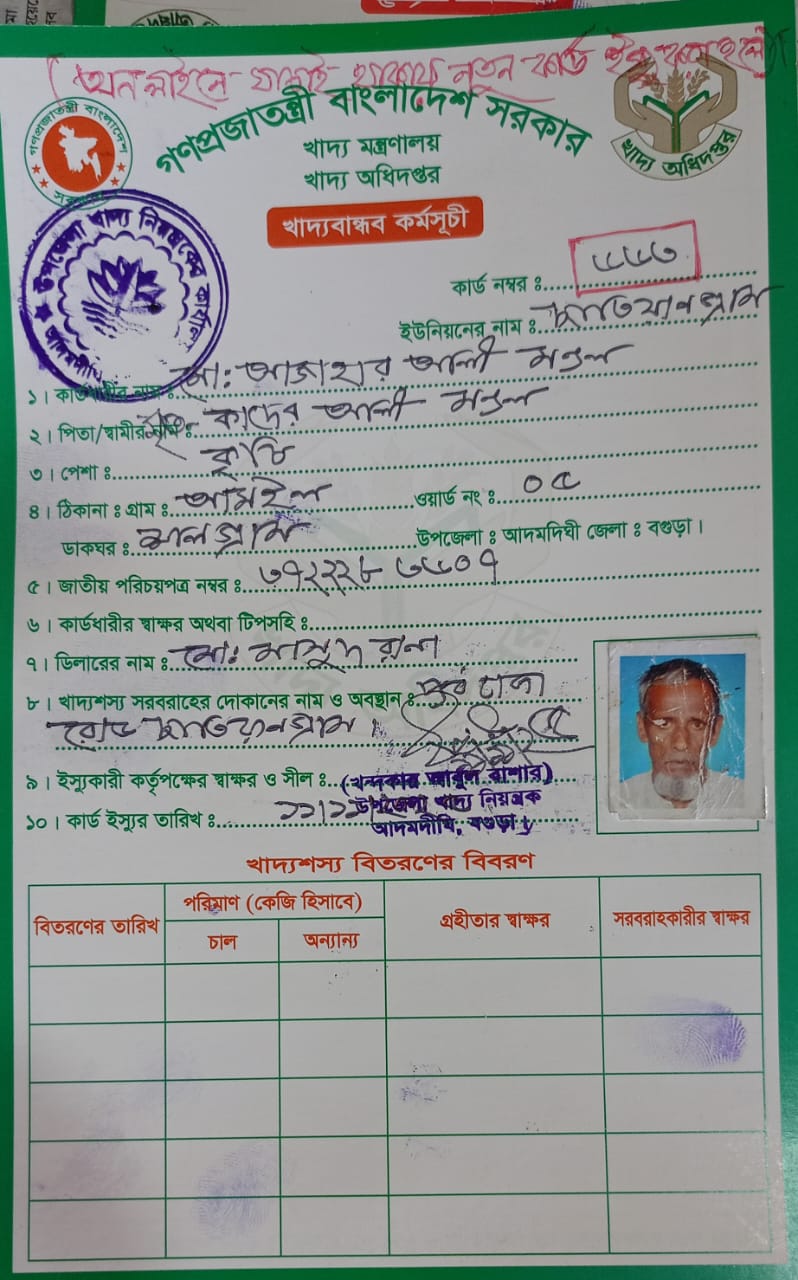 (অনলাইনে যাচাই থাকায় নতুন কার্ড ইস্যু করা হলো)
গণপ্রজাতন্ত্রী বাংলাদেশ সরকার
গণপ্রজাতন্ত্রী বাংলাদেশ
সরকার
খাদ্য মন্ত্রণালয়
খাদ্য অধিদপ্তর
খাদ্য অধিদপ্তর
খাদ্যবান্ধব কর্মসূচী
উপজেলা খাদ্য নিয়ন্ত্রকের কার্যালয়
আদমদীঘি
কার্ড নম্বর :
ইউনিয়নের নাম : ছাতিয়ানগ্রাম
১। কার্ডধারীর নাম : মো: আজাহার আলী মন্ডল
২। পিতা/স্বামীর নাম : মৃত: কাদের আলী মন্ডল
৩। পেশা : কৃষি
৪। ঠিকানা : গ্রাম : আমইল ওয়ার্ড নং : ০৫
ডাকঘর : মালগ্রাম উপজেলা : আদমদিঘী জেলা : বগুড়া।
৫। জাতীয় পরিচয়পত্র নম্বর :
৬। কার্ডধারীর স্বাক্ষর অথবা টিপসহি :
৭। ডিলারের নাম : মো: মাসুদ রানা
৮। খাদ্যশস্য সরবরাহের দোকানের নাম ও অবস্থান : পূর্ব ঢাকা
রোড ছাতিয়ানগ্রাম।
৯। ইস্যুকারী কর্তৃপক্ষের স্বাক্ষর ও সীল : (খন্দকার আবুল বাশার)
উপজেলা খাদ্য নিয়ন্ত্রক
১০। কার্ড ইস্যুর তারিখ :
আদমদীঘি, বগুড়া।
খাদ্যশস্য বিতরণের বিবরণ
বিতরণের তারিখ পরিমাণ (কেজি হিসাবে) গ্রহীতার স্বাক্ষর সরবরাহকারীর স্বাক্ষর
চাল অন্যান্য